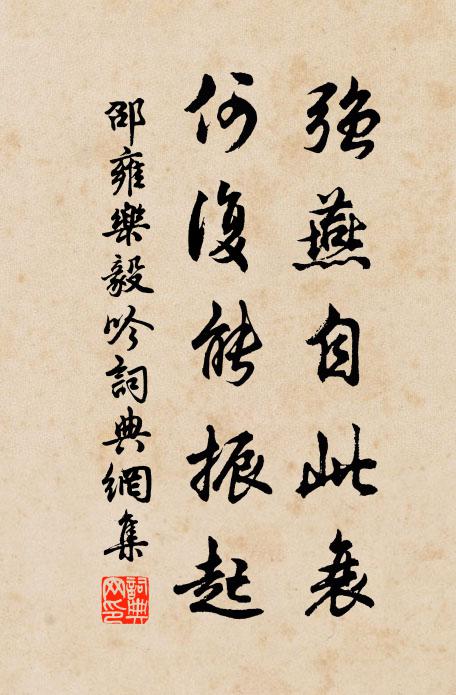 強燕自此衰
何復能振起
邵雍樂毅吟詞典網集
詞典
网印